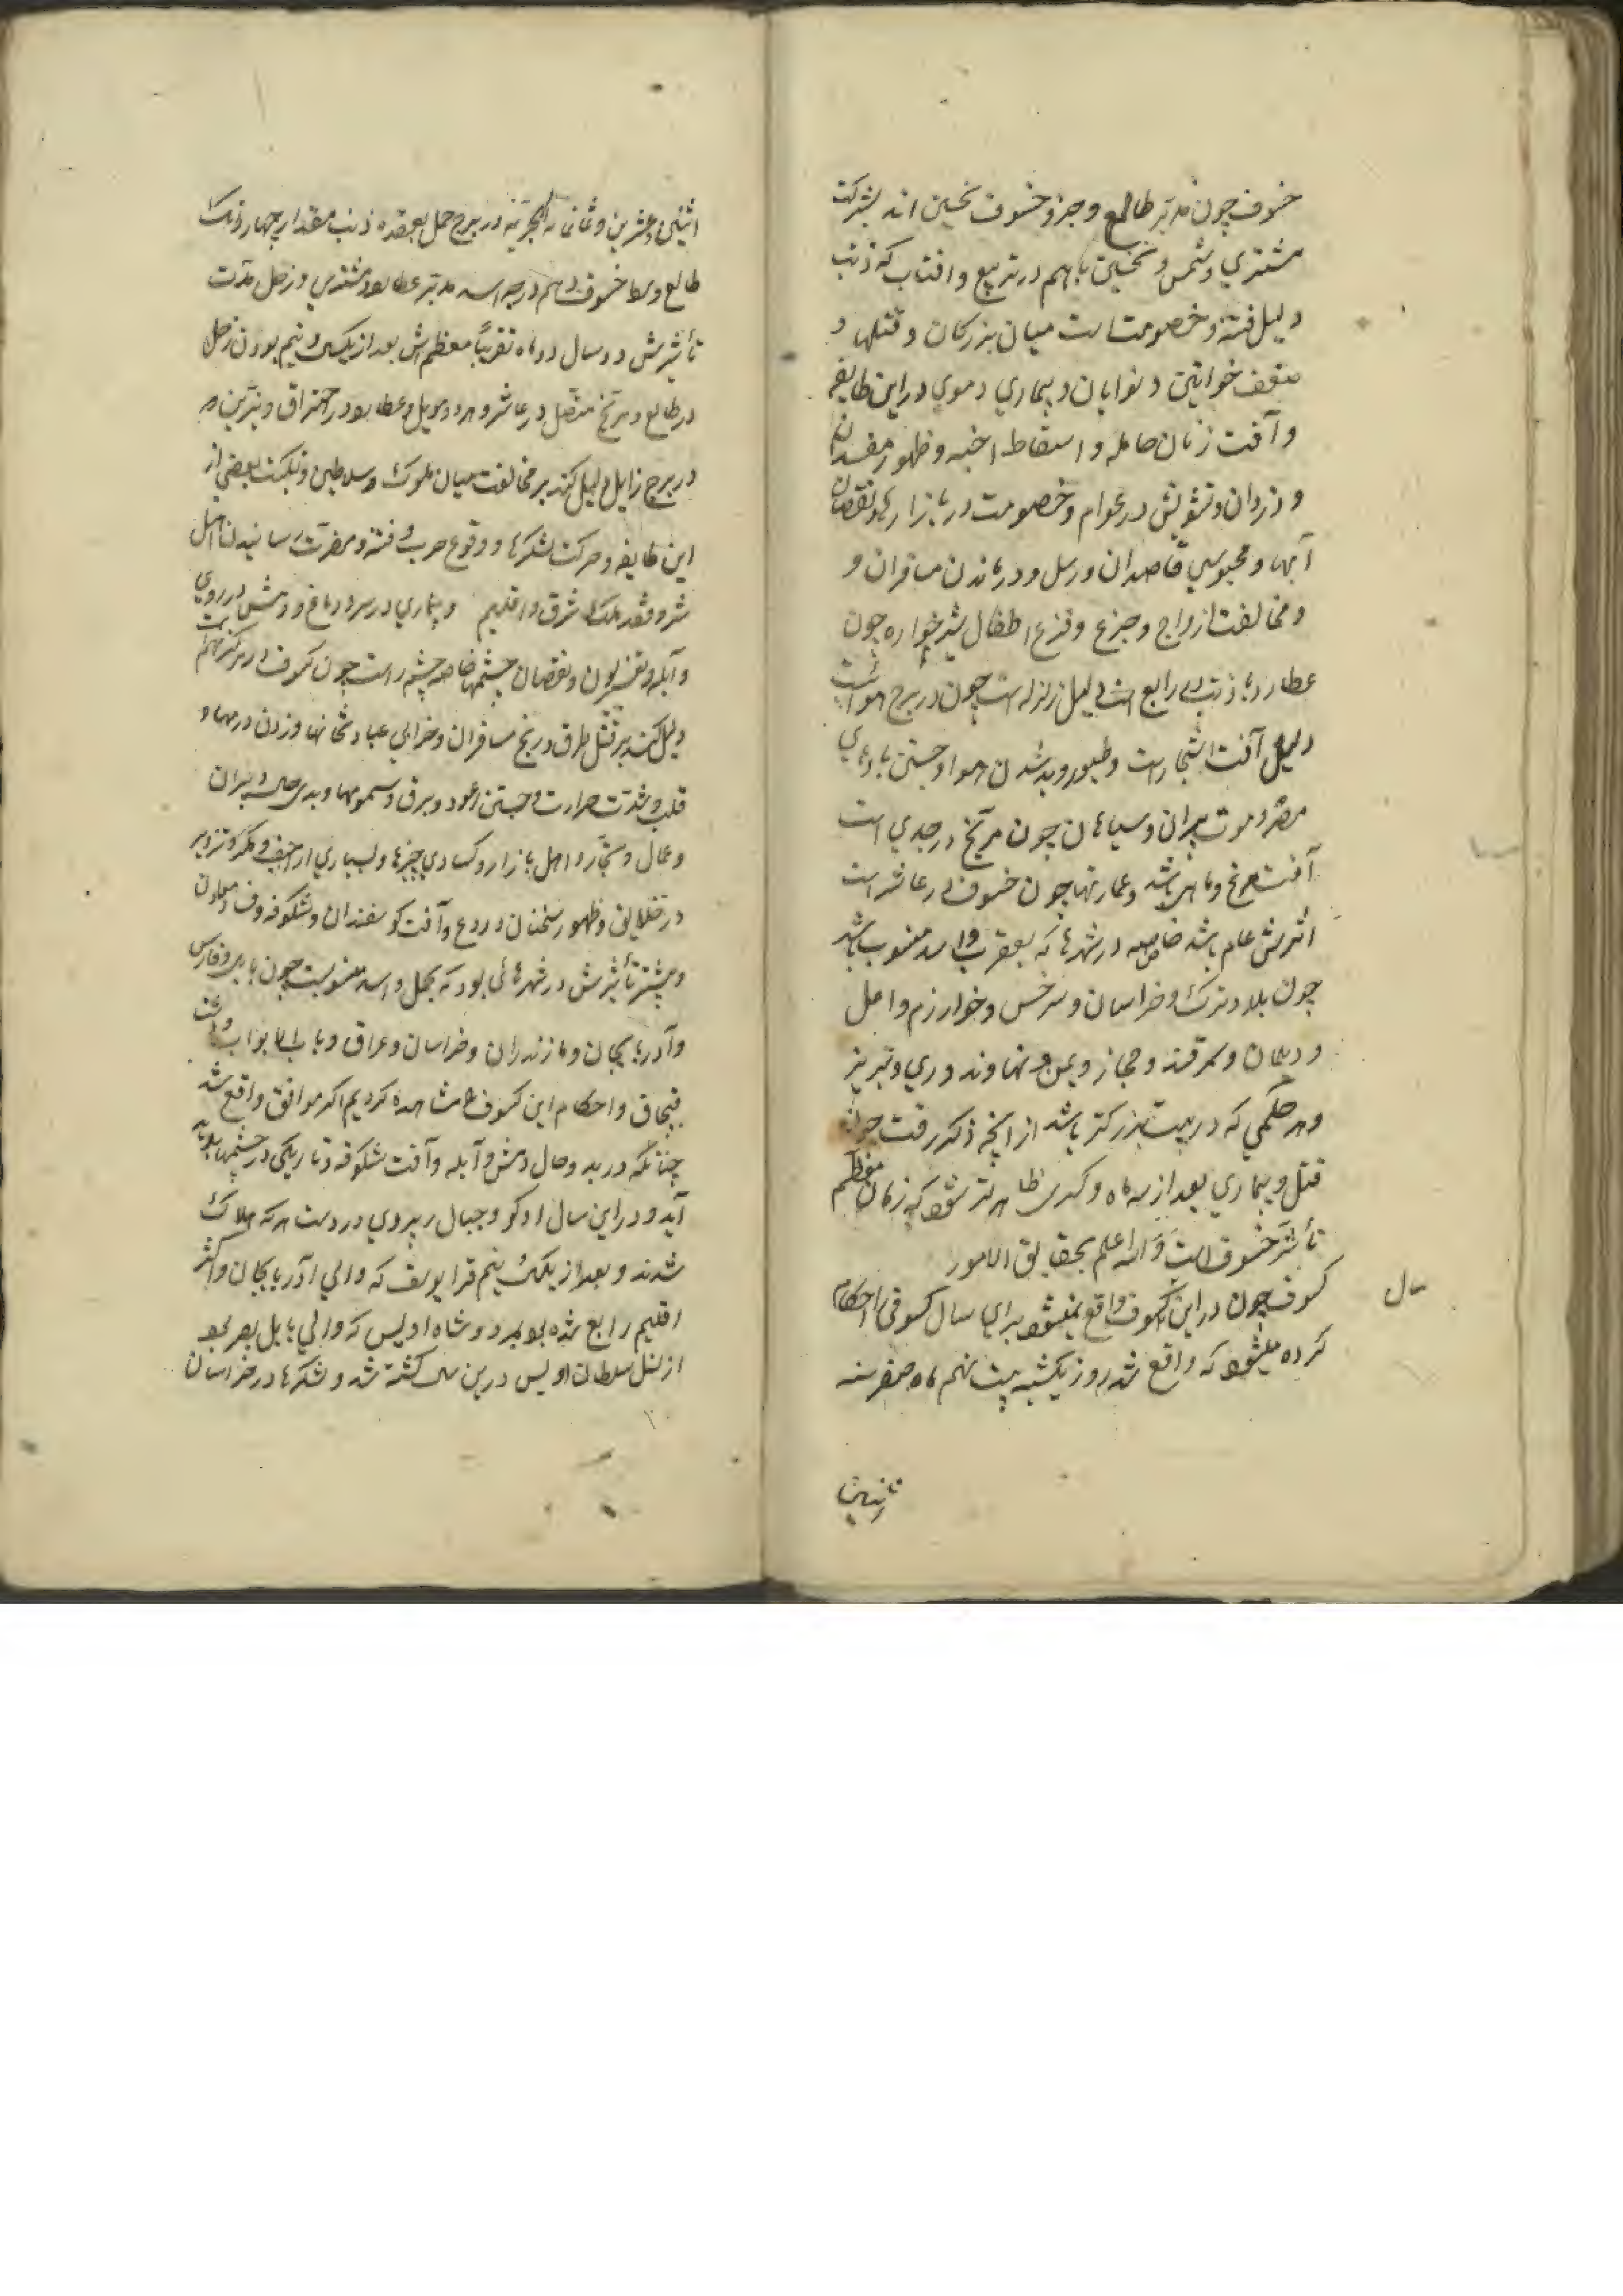 خسوف چون مدبّر طالع و جزو خسوف نحسین اند بشرکت
مشتري و شمس و نحسین باهم در تربیع و افتاب که ذنب
دلیل فتنه و خصومتست میان بزرکان و قتلها و
ضعف خواتین و نوابان و بیماري دموي در این طایفه
و آفت زنان حامله و اسقاط اجنه و ظهور مفسدان
و دزدان و تشویش در عوام و خصومت در بازارها و نقصان
آبها و محبوسي قاصدان و رسل و درماندن مسافران و
و مخالفت ازواج و جزع و فزع اطفال شیرخواره چون
عطارد با ذنب در رابع است دلیل زلزله است چون در برج هوائیست
دلیل آفت اشجارست و طیور و بد شدن هوا و جستن بادهاي
مضر و موت پیران و سیاهان چون مریخ در جدي است
آفت مرغ و ماهي باشد و عمارتها چون خسوف در عاشرست
اثرش عام باشد خاصه در شهرها که بعقرب و اسد منسوب باشد
چون بلاد ترک و خراسان و سرخس و خوارزم و امل
و دیلمان و سمرقند و حجاز و یمن و نهاوند و ري و تبریز
و هر حکمي که در بیت بزرکتر باشد از انچه ذکر رفت چون
قتل و بیماري بعد از سه ماه و کسري ظاهرتر شود که زمان معظم
تأثیر خسوف است و الله اعلم بحقایق الامور
کسوف چون در این کسوف واقع نمیشود براي سال کسوفي احکام
سال
کرده میشود که واقع شد روز یکشنبه بیست نهم ماه صفر سنه
اثنین و عشرین و ثمانمائه الهجریّه در برج حمل بعقده ذنب مقدار چهار دانک
طالع وسط خسوف دهم درجه اسد مدبّر عطارد و مشتري و زحل مدّت
تأثیرش دو سال دو ماه تقریباً معظم اش بعد از یکسال و نیم بودن زحل
در طالع و مریخ متّصل در عاشر و هر دو وبیل و عطارد در احتراق و نیّرین
در برج زایل دلیل کند بر مخالفت میان ملوک و سلاطین و نکبت بعضي از
این طایفه و حرکت لشکرها و وقوع حرب و فتنه و مضرّت رسانیدن اهل
شر و قصد ملک شرق و اقلیم و بیماري در سر و دماغ و دمش در روي
و آبله و نقصان چشمها خاصه چشم راست چون کسوف در
دلیل کند بر قتل طرق و رنج مسافران و خرابي عبادتخانها و زدن درمها و
قلب و شدّت حرارت و جستن رعود و برق و سمومها و بدي حال دبیران
و عمال و تجّار و اهل بازار و کسادي چیزها و بسیاري اراجیف و مکر و تزویر
در خلایق و ظهور سخنان دروغ و آفت کوسفندان و شکوفه و فساد معادن
و بیشتر تأثیرش در شهرهائي بود که بحمل و اسد منسوبست چون بابل و فارس
و آذربایجان و مازندران و خراسان و عراق و باب الابواب و
قبچاق و احکام این کسوف ما مشاهده کردیم اکثر موافق واقع شد
چنانکه در بدو حال دمش و آبله و آفت شکوفه و تاریکي در چشمها
آید و در این سال
شدند و بعد از یکسال و نیم قرا یوسف که والي آذربایجان و اکثر
اقلیم رابع شده بود بمرد و شاه اویس که والي بابل بود
از نسل سلطان اویس درین سال کشته شد و لشکرها در خراسان